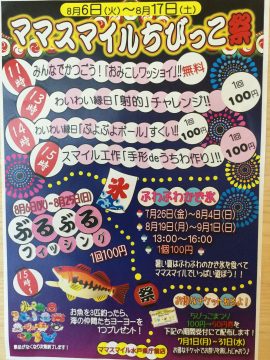 8月6日(火)～8月17日(土)
ママスマイルちびっこ祭
11時
みんなでかつごう!「おみこしワッショイ」!!無料
13時
わいわい縁日「射的」チャレンジ!!
1回100円
14時
わいわい縁日「ぷよぷよボール」すくい!!
1回100円
15時
スマイル工作「手形deうちわ作り」!!
100円
8月6日(火)～8月25日(日)
ぷるぷる
フィッシング
1回100円
氷
ふわふわかき氷
7月26日(金)～8月4日(日)
8月19日(月)～9月1日(日)
13:00～16:00
1個100円
暑い夏はふわふわかき氷を食べて
ママスマイルでいっぱい遊ぼう!!
15時
お魚を3匹釣ったら、
海の仲間たちヨーヨーを
プレゼント!
祭
ちびっこまつり
100円→50円券を
下記の期間受付にて配布します!
7月1日(月)～31日(水)
ママスマイル水戸県庁東店